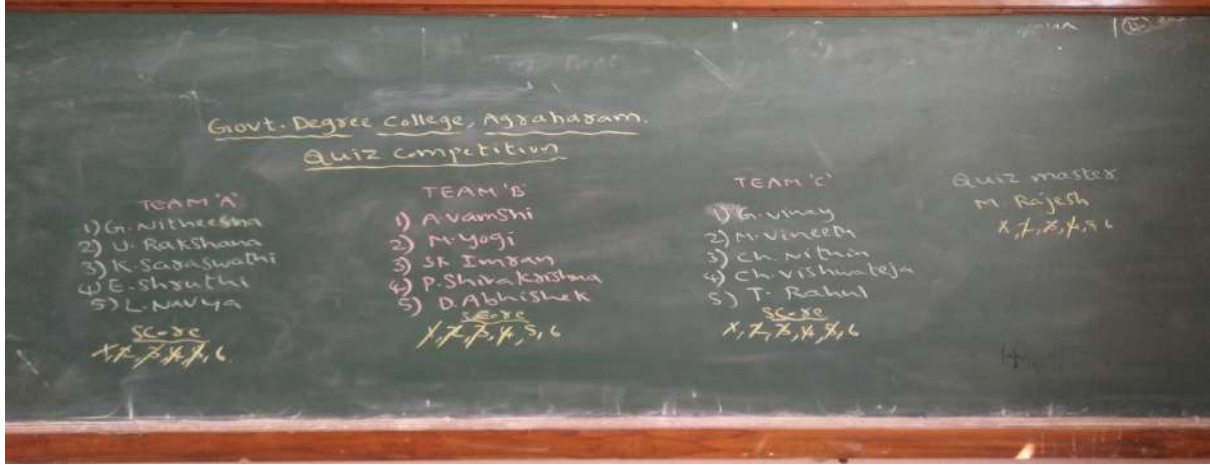 Govt. Degree College, Agraharam.
Quiz Competition
TEAM 'A'
1) G. Nitheesha
2) U. Rakshana
3) K. Saraswathi
4) E. Shruthi
5) L. Navya
Score
1, 2, 3, 4, 5, 6
TEAM 'B'
1) A. Vamshi
2) M. Yogi
3) SK Imran
4) P. Shiva Krishna
5) D. Abhishek
Score
1, 2, 3, 4, 5, 6
TEAM 'C'
1) G. Vinay
2) M. Vineeth
3) Ch. Nithin
4) Ch. Vishwateja
5) T. Rahul
Score
1, 2, 3, 4, 5, 6
Quiz master
M. Rajesh
1, 2, 3, 4, 5, 6